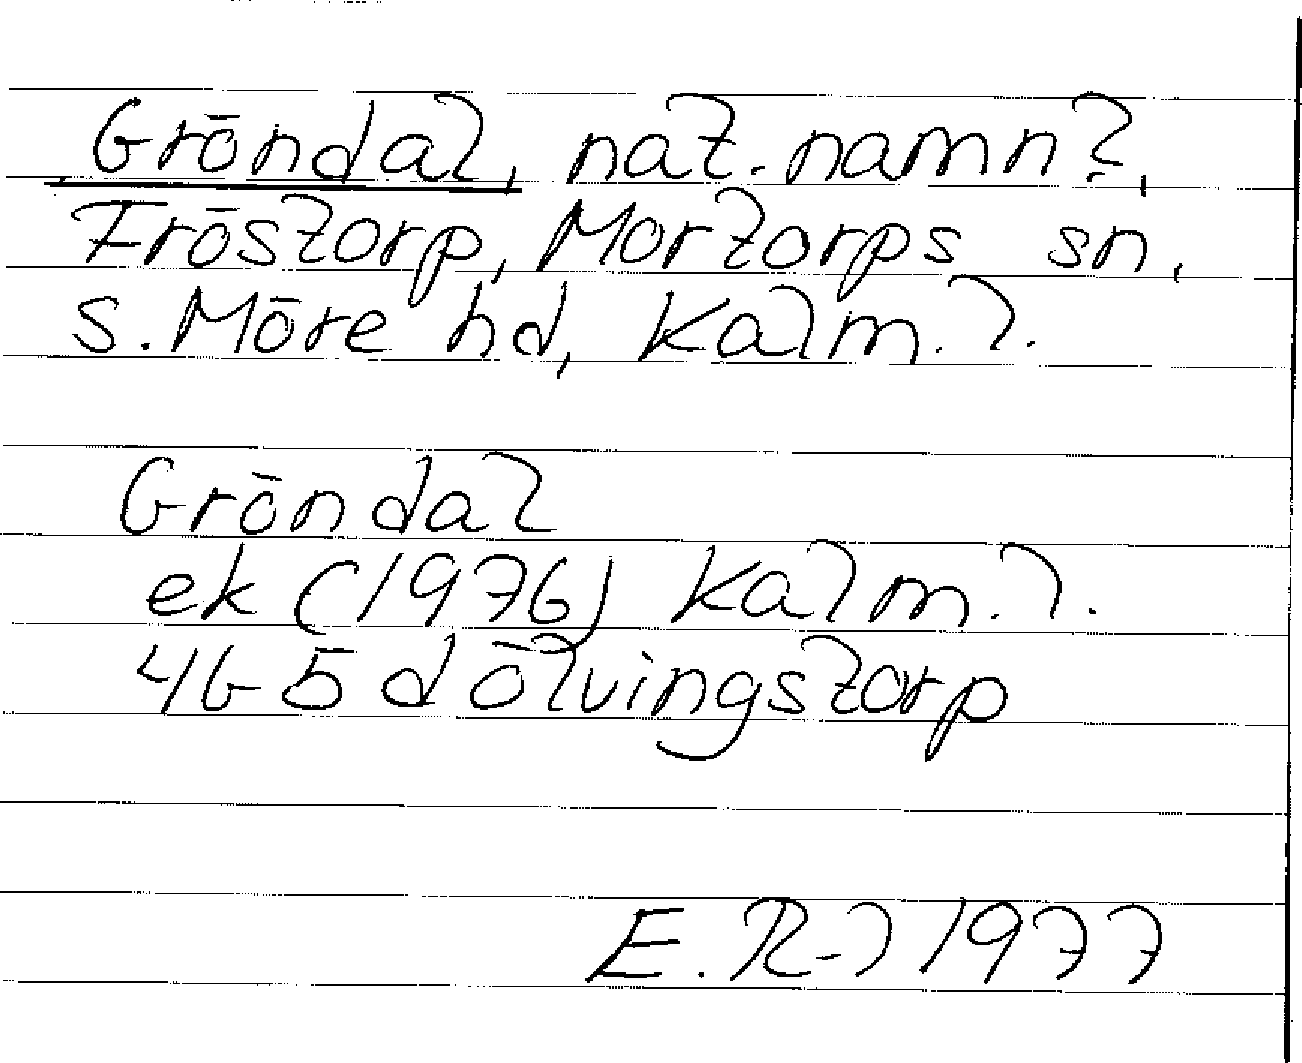 Gröndal, nat. namn?,
Fröstorp, Mortorps sn,
S. Möre hd, Kalm. l.
Gröndal
ek (1976) Kalm. l.
4G 5d Ölvingstorp
E. R-l 1977